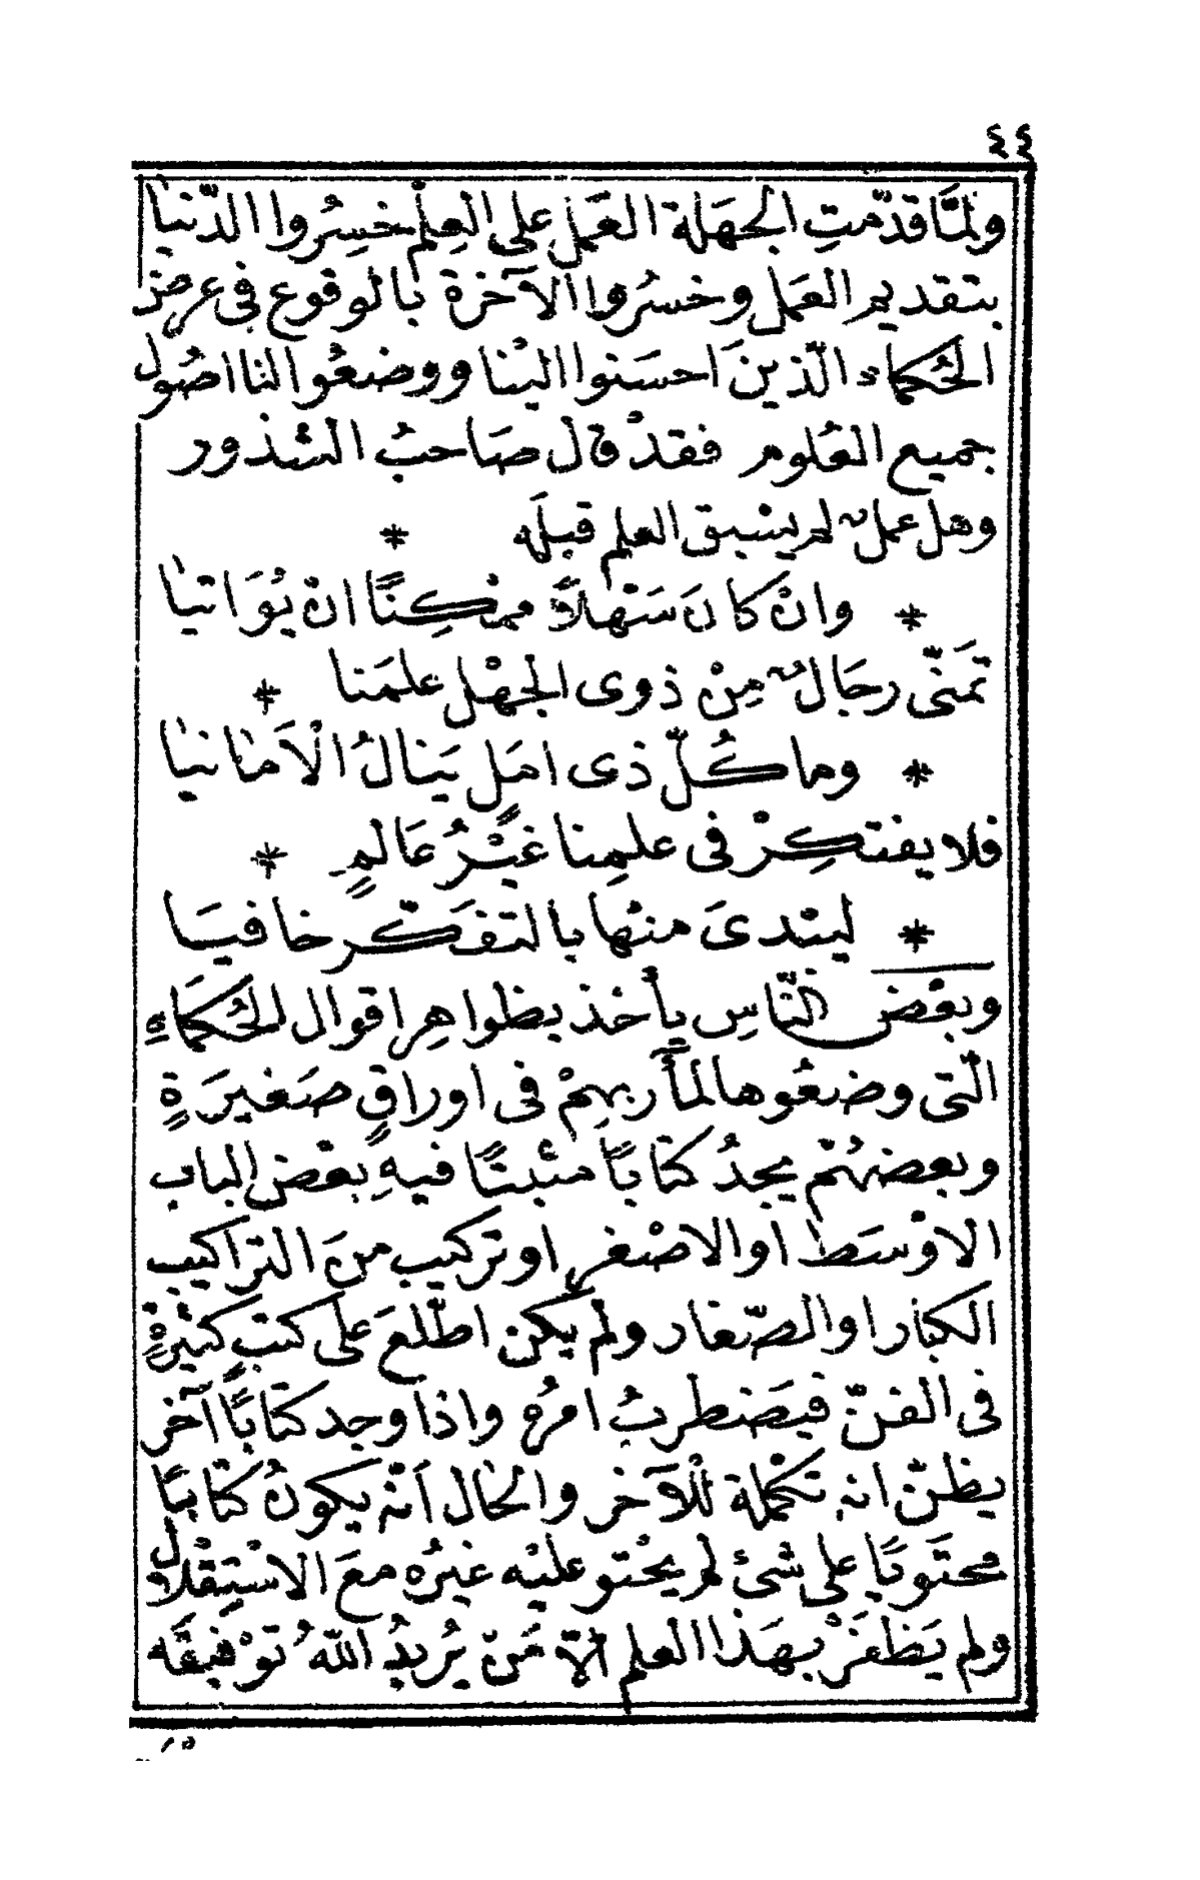 ٤٤
ولمَّا قدّمتِ الجهَلة العَمل على العِلْم خسِرُوا الدّنيا
بتقديم العَمل وخسرُوا الآخرة بالوقوع فى عرض
الحُكماء الّذينَ احسَنوا الينا ووضعُوا لنا اصُول
جميع العُلوم فقدْ قال صَاحبُ الشذور
وهل عمل لم يسْبق العلم قبلَه *
* وانْ كانَ سَهلاً ممْكِنًا انْ يُوَاتيا
تمَنّى رجَال مِنْ ذوى الجهْل علمَنا *
* وما كُلّ ذى امَلٍ يَنالُ الْاَمانيا
فلا يفتكِرْ فى علمِنا غيْرُ عَالمٍ *
* ليبْدىَ منْها بالتفَكّر خافيَا
وبعْض النّاسِ يأخذ بظواهِر اقوال الحُكماءِ
الّتى وضعُوها لمأربهِمْ فى اوراقٍ صَغيرَةٍ
وبعضهُمْ يجدُ كتابًا مثبتًا فيهِ بعْض الباب
الاوْسَط او الاصْغر او تركيب منَ التراكيب
الكبار او الصّغار ولم يكن اطّلعَ على كتبٍ كثيرةٍ
فى الفنّ فيَضطربُ امرُه واذا وجد كتابًا آخر
يظنّ انه تكملة للْآخر والحال اَنّه يكونُ كتابًا
محتَويًا على شئ لم يحْتو عليْه غيرُه معَ الاسْتِقْلال
ولم يَظفرْ بهَذا العلم الّا مَنْ يُريدُ اللهُ توْفيقَه